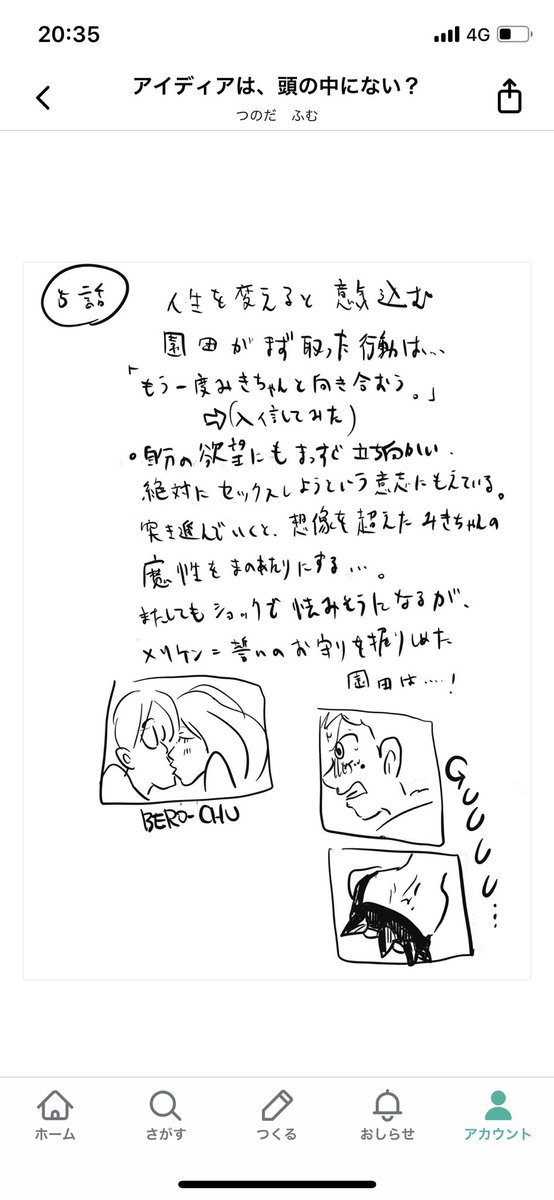 20:35
4G
アイディアは、頭の中にない？
つのだ　ふむ
5話
人生を変えると意気込む
園田がまず取った行動は…
「もう一度みきちゃんと向き合おう。」
⇨(入信してみた)
・自分の欲望にもまっすぐ立ち向かい、
絶対にセックスしようという意志にもえている。
突き進んでいくと、想像を超えたみきちゃんの
魔性をまのあたりにする…。
またしてもショックで怯みそうになるが、
メリケン=誓いのお守りを握りしめた
園田は…！
BERO-CHU
GUUUUU…
ホーム
さがす
つくる
おしらせ
アカウント